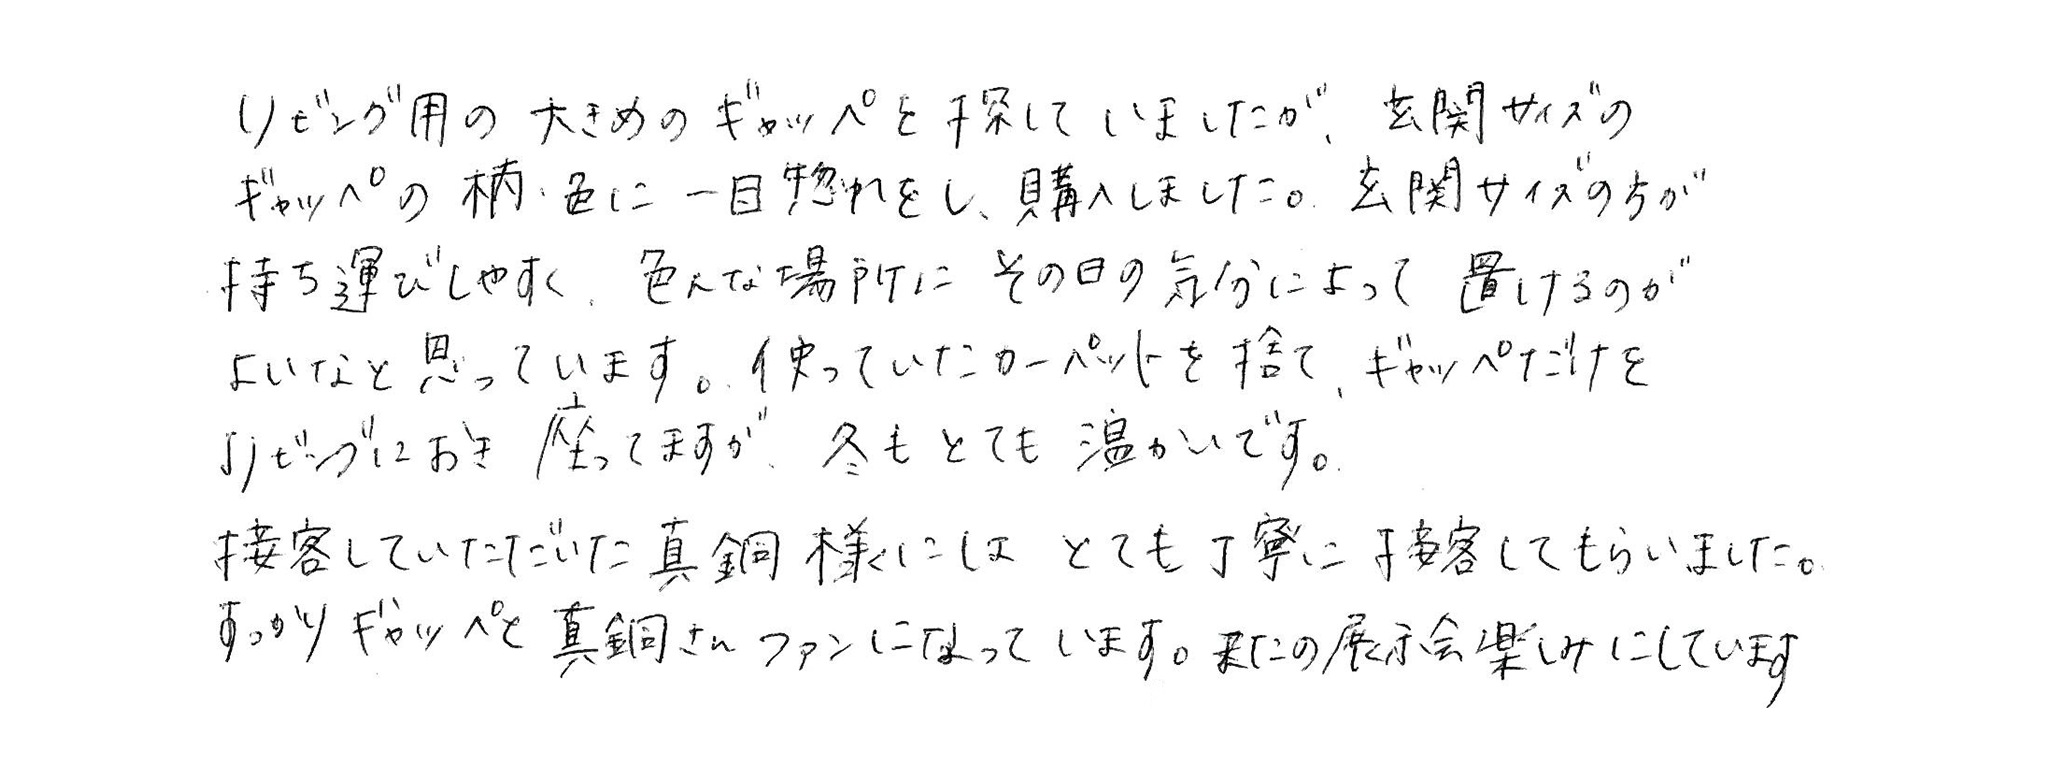 リビング用の大きめのギャッペを探していましたが、玄関サイズの
ギャッペの柄・色に一目惚れをし、購入しました。玄関サイズの方が
持ち運びしやすく、色んな場所にその日の気分によって置けるのが
よいなと思っています。使っていたカーペットを捨て、ギャッペだけを
リビングにおき座ってますが、冬もとても温かいです。
接客していただいた真銅様にはとても丁寧に接客してもらいました。
すっかりギャッペと真銅さんファンになっています。またの展示会楽しみにしています